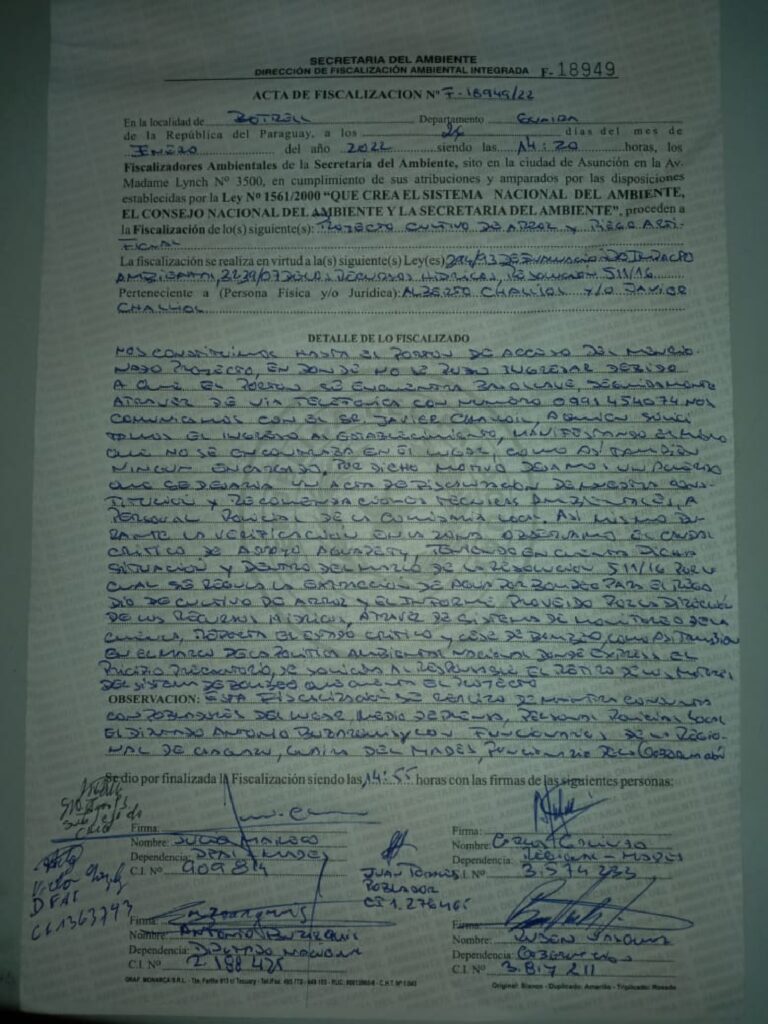 SECRETARIA DEL AMBIENTE
DIRECCIÓN DE FISCALIZACIÓN AMBIENTAL INTEGRADA F-18949
ACTA DE FISCALIZACION Nº F-18949/22
En la localidad de BOTRELL Departamento GUAIRA
de la República del Paraguay, a los 24 días del mes de
ENERO del año 2022 siendo las 14:20 horas, los
Fiscalizadores Ambientales de la Secretaría del Ambiente, sito en la ciudad de Asunción en la Av.
Madame Lynch Nº 3500, en cumplimiento de sus atribuciones y amparados por las disposiciones
establecidas por la Ley Nº 1561/2000 “QUE CREA EL SISTEMA NACIONAL DEL AMBIENTE,
EL CONSEJO NACIONAL DEL AMBIENTE Y LA SECRETARIA DEL AMBIENTE”, proceden a
la Fiscalización de lo(s) siguiente(s): PROYECTO CULTIVO DE ARROZ Y RIEGO ARTI-
FICIAL
La fiscalización se realiza en virtud a la(s) siguiente(s) Ley(es) 294/93 DE EVALUACION DE IMPACTO
AMBIENTAL, 3239/07 DE LOS RECURSOS HIDRICOS, RESOLUCION 511/16
Perteneciente a (Persona Física y/o Jurídica): ALBERTO CHALLIOL Y/O JAVIER
CHALLIOL
DETALLE DE LO FISCALIZADO
NOS CONSTITUIMOS HASTA EL PORTON DE ACCESO DEL MENCIO-
NADO PROYECTO, EN DONDE NO SE PUDO INGRESAR DEBIDO
A QUE EL PORTON SE ENCUENTRA BAJO LLAVE, SEGUIDAMENTE
ATRAVEZ DE VIA TELEFONICA CON NUMERO 0991454074 NOS
COMUNICAMOS CON EL SR. JAVIER CHALLIOL, A QUIEN SOLICI
TAMOS EL INGRESO AL ESTABLECIMIENTO, MANIFESTANDO EL MISMO
QUE NO SE ENCONTRABA EN EL LUGAR, COMO ASI TAMBIEN
NINGUN ENCARGADO, POR DICHO MOTIVO
QUE SE DEJARIA UN ACTA DE FISCALIZACION DE NUESTRA CONS-
TITUCION Y RECOMENDACIONES TECNICAS AMBIENTALES, A
PERSONAL POLICIAL DE LA COMISARIA LOCAL. ASI MISMO DU-
RANTE LA VERIFICACION EN LA ZONA OBSERVAMOS EL CAUDAL
CRITICO DE ARROYO, TENIENDO EN CUENTA DICHA
SITUACION Y DENTRO DEL MARCO DE LA RESOLUCION 511/16 POR LA
CUAL SE REGULA LA EXTRACCION DE AGUA POR BOMBEO PARA EL RIEGO
DE CULTIVO DE ARROZ Y EL INFORME PROVEIDO POR LA DIRECCION
DE LOS RECURSOS HIDRICOS, ATRAVEZ DE SISTEMA DE MONITOREO DE LA
CUENCA, REPORTA EL ESTADO CRITICO Y CESE DE BOMBEO, COMO ASI TAMBIEN
EN EL MARCO DE LA POLITICA AMBIENTAL NACIONAL DONDE EXPRESA EL
PRINCIPIO PRECAUTORIO, SE SOLICITA AL RESPONSABLE EL RETIRO DE LOS MOTORES
DEL SISTEMA DE BOMBEO QUE CUENTA EL PROYECTO
OBSERVACION: ESTA FISCALIZACION SE REALIZO DE MANERA CONJUNTA
CON POBLADORES DEL LUGAR, MEDIO DE PRENSA, PERSONAL POLICIAL LOCAL
EL DIPUTADO ANTONIO BUZARQUIS Y CON FUNCIONARIOS DE LA REGIO-
NAL DE CAAGUAZU, GUAIRA DEL MADES, FUNCIONARIO DE LA GOBERNACION
Se dio por finalizada la Fiscalización siendo las 14:55 horas con las firmas de las siguientes personas:
Firma:
Nombre: JULIO MARECO
Dependencia: DFAI MADES
C.I. Nº 909.814
Firma:
Nombre: CARLOS
Dependencia: REGIONAL - MADES
C.I. Nº 3.574.233
Victor
DFAI
CI 1363743
JUAN TORRES
POBLADOR
CI 1.276465
Firma:
Nombre: ANTONIO BUZARQUIS
Dependencia: DIPUTADO NACIONAL
C.I. Nº 2.188.425
Firma:
Nombre: RUBEN VAZQUEZ
Dependencia: GOBERNACION
C.I. Nº 3.817.211
Original: Blanco - Duplicado: Amarillo - Triplicado: Rosado